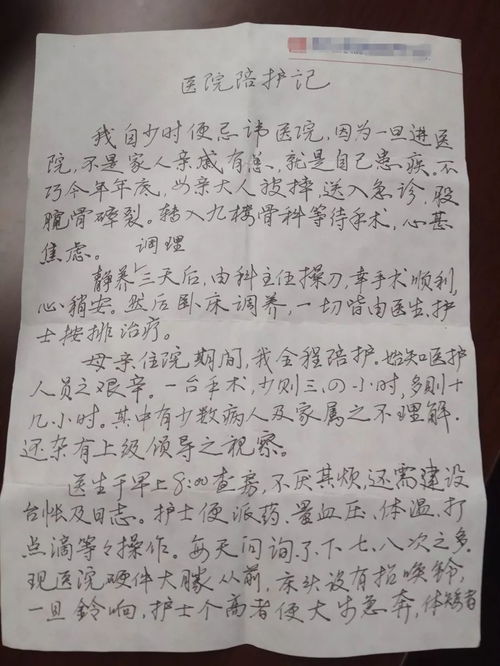 医院陪护记
我自少时便忌讳医院，因为一旦进医
院，不是家人亲戚有恙，就是自己患疾。不
巧今年年底，母亲大人被摔，送入急诊，股
髋骨碎裂。转入九楼骨科等待手术，心甚
焦虑。 调理
静养三天后，由科主任操刀，幸手术顺利，
心稍安。然后卧床调养，一切皆由医生、护
士按排治疗。
母亲住院期间，我全程陪护。始知医护
人员之艰辛。一台手术，少则三、四小时，多则十
几小时。其中有少数病人及家属之不理解，
还杂有上级领导之视察。
医生于早上8:00查房，不厌其烦，还需建设
台帐及日志。护士便派药、量血压、体温、打
点滴等等操作。每天问询不下七、八次之多。
现医院硬件大胜从前，床头设有招唤铃，
一旦铃响，护士个高者便大步急奔，体矮者